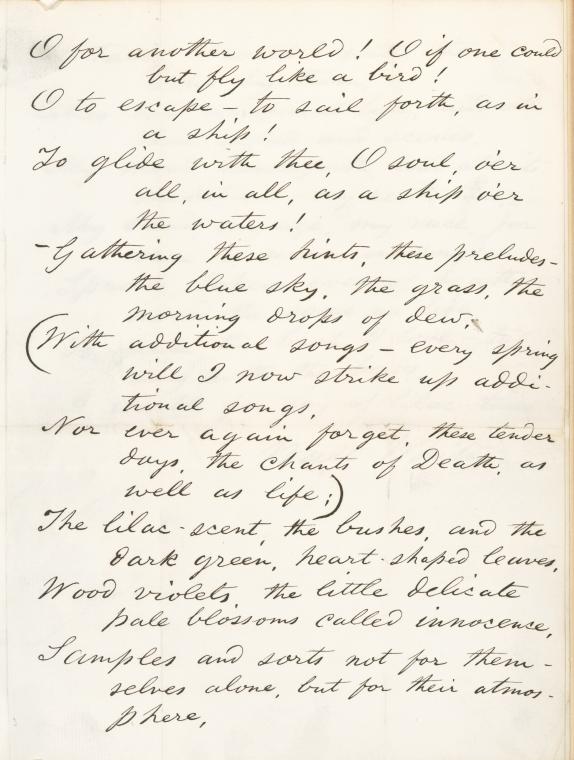 O for another world! O if one could
but fly like a bird!
O to escape – to sail forth, as in
a ship!
To glide with thee, O soul, o'er
all, in all, as a ship o'er
the waters!
– Gathering these hints, these preludes –
the blue sky, the grass, the
morning drops of dew,
(With additional songs – every spring
will I now strike up addi-
tional songs,
Nor ever again forget, these tender
days, the chants of Death, as
well as life;)
The lilac-scent, the bushes, and the
dark green, heart-shaped leaves,
Wood violets, the little delicate
pale blossoms called innocence,
Samples and sorts not for them-
selves alone, but for their atmos-
phere,